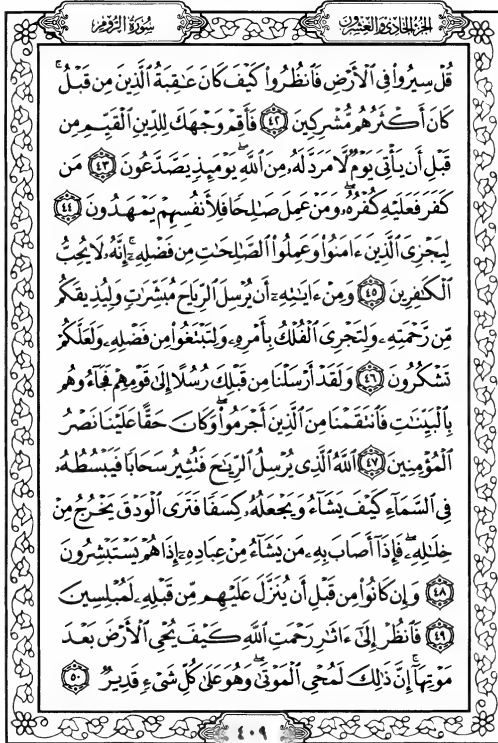 سُورَةُ الرُّومِ
الجُزْءُ الحَادِي وَالعِشْرُونَ
قُلْ سِيرُوا۟ فِى ٱلْأَرْضِ فَٱنظُرُوا۟ كَيْفَ كَانَ عَٰقِبَةُ ٱلَّذِينَ مِن قَبْلُ ۚ
كَانَ أَكْثَرُهُم مُّشْرِكِينَ ٤٢ فَأَقِمْ وَجْهَكَ لِلدِّينِ ٱلْقَيِّمِ مِن
قَبْلِ أَن يَأْتِىَ يَوْمٌ لَّا مَرَدَّ لَهُۥ مِنَ ٱللَّهِ ۖ يَوْمَئِذٍ يَصَّدَّعُونَ ٤٣ مَن
كَفَرَ فَعَلَيْهِ كُفْرُهُۥ ۖ وَمَنْ عَمِلَ صَٰلِحًا فَلِأَنفُسِهِمْ يَمْهَدُونَ ٤٤
لِيَجْزِىَ ٱلَّذِينَ ءَامَنُوا۟ وَعَمِلُوا۟ ٱلصَّٰلِحَٰتِ مِن فَضْلِهِۦٓ ۚ إِنَّهُۥ لَا يُحِبُّ
ٱلْكَٰفِرِينَ ٤٥ وَمِنْ ءَايَٰتِهِۦٓ أَن يُرْسِلَ ٱلرِّيَاحَ مُبَشِّرَٰتٍ وَلِيُذِيقَكُم
مِّن رَّحْمَتِهِۦ وَلِتَجْرِىَ ٱلْفُلْكُ بِأَمْرِهِۦ وَلِتَبْتَغُوا۟ مِن فَضْلِهِۦ وَلَعَلَّكُمْ
تَشْكُرُونَ ٤٦ وَلَقَدْ أَرْسَلْنَا مِن قَبْلِكَ رُسُلًا إِلَىٰ قَوْمِهِمْ فَجَآءُوهُم
بِٱلْبَيِّنَٰتِ فَٱنتَقَمْنَا مِنَ ٱلَّذِينَ أَجْرَمُوا۟ ۖ وَكَانَ حَقًّا عَلَيْنَا نَصْرُ
ٱلْمُؤْمِنِينَ ٤٧ ٱللَّهُ ٱلَّذِى يُرْسِلُ ٱلرِّيَٰحَ فَتُثِيرُ سَحَابًا فَيَبْسُطُهُۥ
فِى ٱلسَّمَآءِ كَيْفَ يَشَآءُ وَيَجْعَلُهُۥ كِسَفًا فَتَرَى ٱلْوَدْقَ يَخْرُجُ مِنْ
خِلَٰلِهِۦ ۖ فَإِذَآ أَصَابَ بِهِۦ مَن يَشَآءُ مِنْ عِبَادِهِۦٓ إِذَا هُمْ يَسْتَبْشِرُونَ
٤٨ وَإِن كَانُوا۟ مِن قَبْلِ أَن يُنَزَّلَ عَلَيْهِم مِّن قَبْلِهِۦ لَمُبْلِسِينَ
٤٩ فَٱنظُرْ إِلَىٰٓ ءَاثَٰرِ رَحْمَتِ ٱللَّهِ كَيْفَ يُحْىِ ٱلْأَرْضَ بَعْدَ
مَوْتِهَآ ۚ إِنَّ ذَٰلِكَ لَمُحْىِ ٱلْمَوْتَىٰ ۖ وَهُوَ عَلَىٰ كُلِّ شَىْءٍ قَدِيرٌ ٥٠
٤٠٩